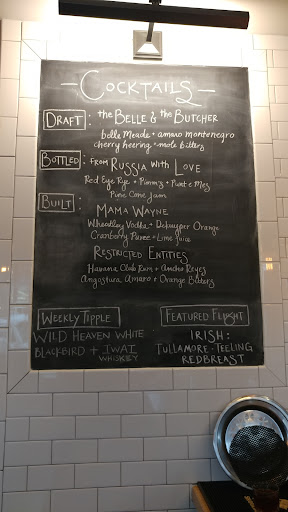 COCKTAILS
DRAFT: the BELLE & the BUTCHER
belle Meade + amaro montenegro
cherry heering + mole bitters
BOTTLED: FROM RUSSIA WITH LOVE
Red Eye Rye + Pimm's + Punt e Mes
Pure Cane Jam
BUILT:
MAMA WAYNE
Wheatley Vodka + Dekuyper Orange
Cranberry Puree + Lime Juice
RESTRICTED ENTITIES
Havana Club Rum + Ancho Reyes
Angostura Amaro + Orange Bitters
WEEKLY TIPPLE
WILD HEAVEN WHITE
BLACKBIRD + IWAI
WHISKEY
FEATURED FLIGHT
IRISH:
TULLAMORE - TEELING
REDBREAST